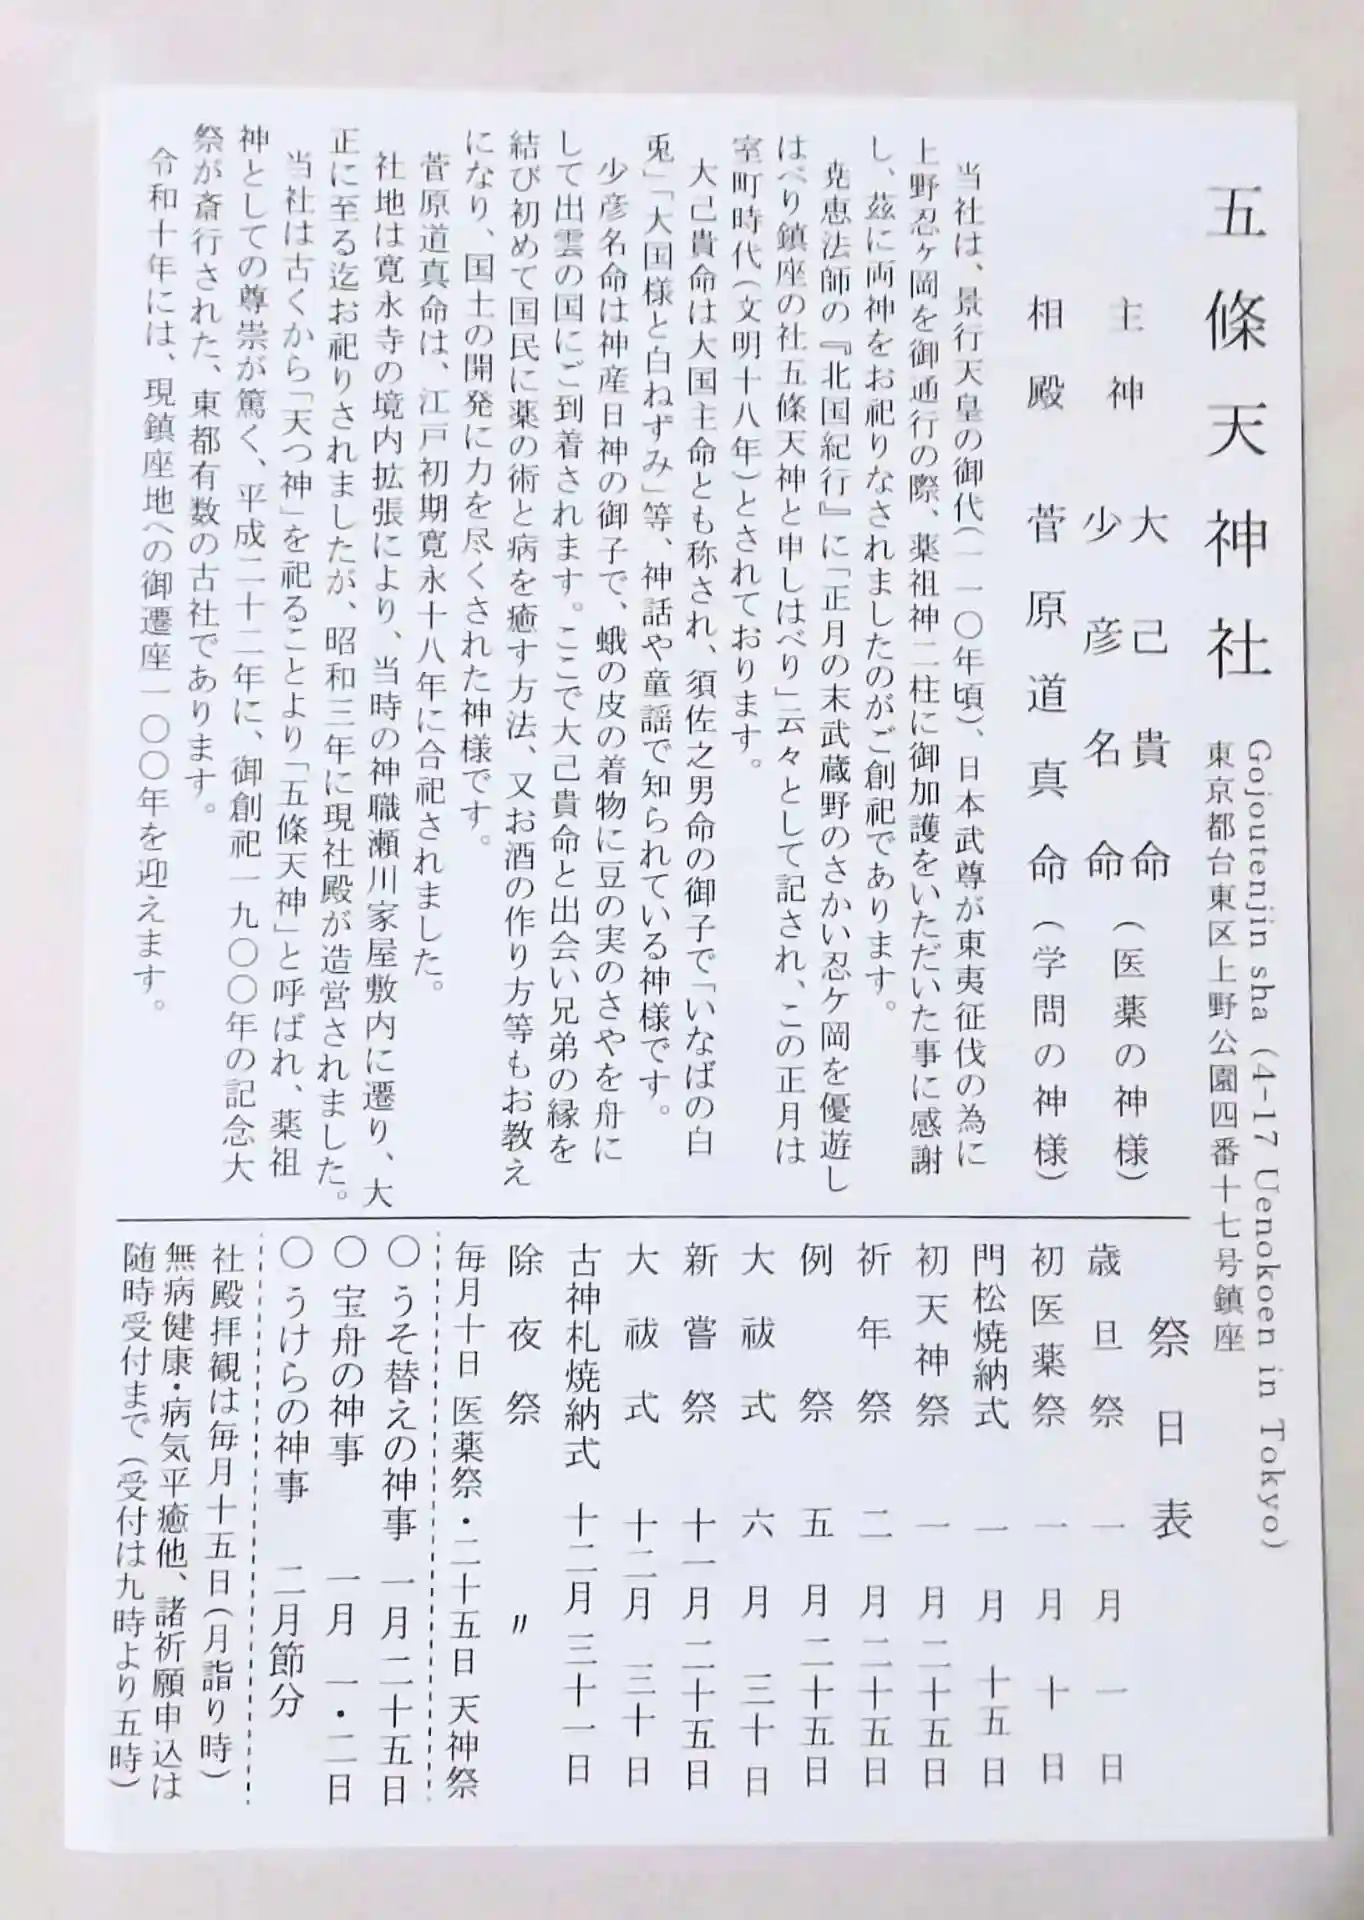 五條天神社
Gojoutenjin sha (4-17 Uenokoen in Tokyo)
東京都台東区上野公園四番十七号鎮座
主神 大己貴命
少彦名命 (医薬の神様)
相殿 菅原道真命 (学問の神様)
当社は、景行天皇の御代(一一〇年頃)、日本武尊が東夷征伐の為に
上野忍ヶ岡を御通行の際、薬祖神二柱に御加護をいただいた事に感謝
し、茲に両神をお祀りなされましたのがご創祀であります。
尭恵法師の『北国紀行』に「正月の末武蔵野のさかい忍ケ岡を優遊し
はべり鎮座の社五條天神と申しはべり」云々として記され、この正月は
室町時代(文明十八年)とされております。
大己貴命は大国主命とも称され、須佐之男命の御子で「いなばの白
兎」「大国様と白ねずみ」等、神話や童謡で知られている神様です。
少彦名命は神産日神の御子で、蛾の皮の着物に豆の実のさやを舟に
して出雲の国にご到着されます。ここで大己貴命と出会い兄弟の縁を
結び初めて国民に薬の術と病を癒す方法、又お酒の作り方等もお教え
になり、国土の開発に力を尽くされた神様です。
菅原道真命は、江戸初期寛永十八年に合祀されました。
社地は寛永寺の境内拡張により、当時の神職瀬川家屋敷内に遷り、大
正に至る迄お祀りされましたが、昭和三年に現社殿が造営されました。
当社は古くから「天つ神」を祀ることより「五條天神」と呼ばれ、薬祖
神としての尊崇が篤く、平成二十二年に、御創祀一九〇〇年の記念大
祭が斎行された、東都有数の古社であります。
令和十年には、現鎮座地への御遷座一〇〇年を迎えます。
祭日表
歳旦祭 一月 一日
初医薬祭 一月 十日
門松焼納式 一月 十五日
初天神祭 一月 二十五日
祈年祭 二月 二十五日
例祭 五月 二十五日
大祓式 六月 三十日
新嘗祭 十一月 二十五日
大祓式 十二月 三十日
古神札焼納式 十二月 三十一日
除夜祭 〃
毎月十日 医薬祭・二十五日 天神祭
〇うそ替えの神事 一月 二十五日
〇宝舟の神事 一月 一・二日
〇うけらの神事 二月節分
社殿拝観は毎月十五日(月詣り時)
無病健康・病気平癒他、諸祈願申込は
随時受付まで(受付は九時より五時)